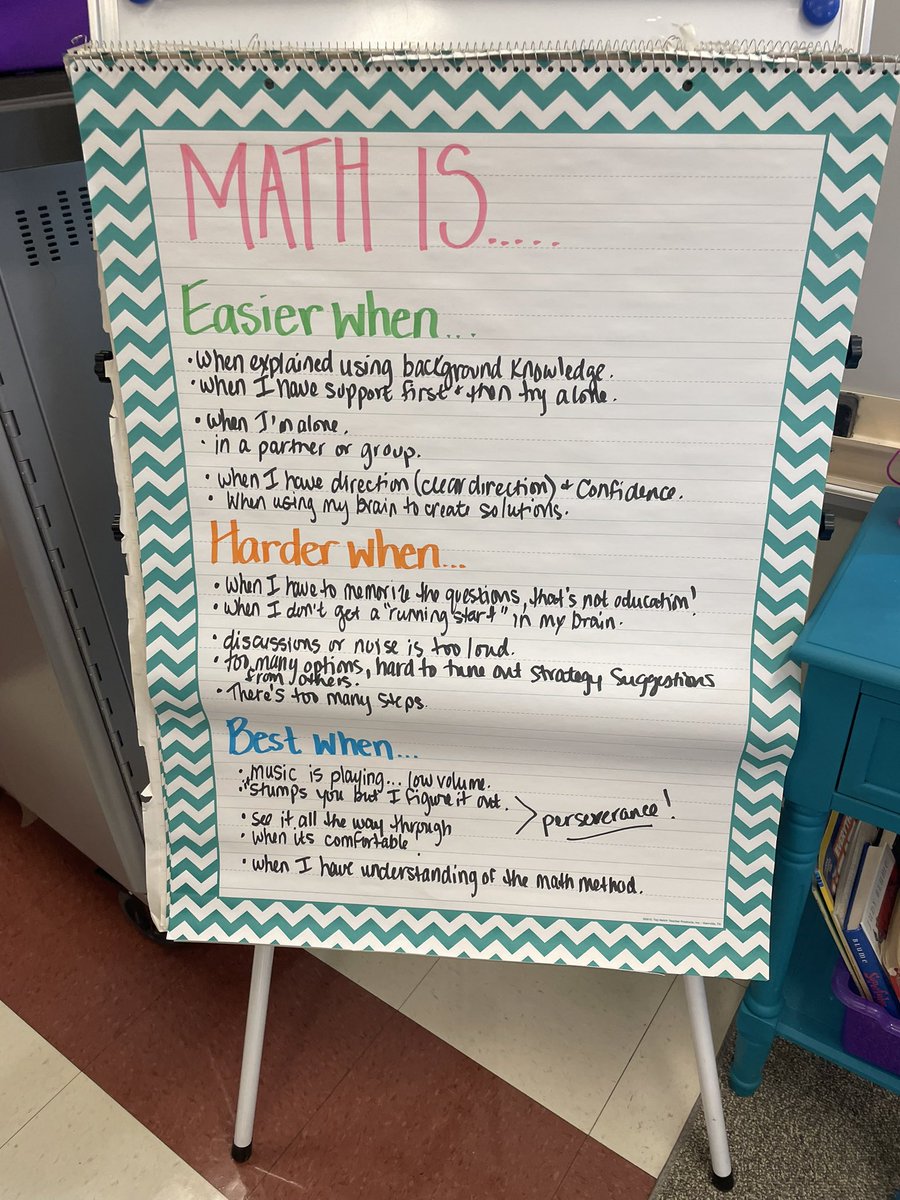 MATH IS.....
Easier when...
• when explained using background knowledge.
• when I have support first + then try alone.
• when I'm alone.
• in a partner or group.
• when I have direction (clear direction) + confidence.
• When using my brain to create solutions.
Harder when...
• when I have to memorize the questions, that's not education!
• when I don't get a "running start" in my brain.
• discussions or noise is too loud.
• too many options, hard to tune out strategy suggestions
from others.
• There's too many steps.
Best when...
• music is playing... low volume.
• "Stumps you but I figure it out.
• see it all the way through
> perseverance!
• when its comfortable
• when I have understanding of the math method.
BLUME